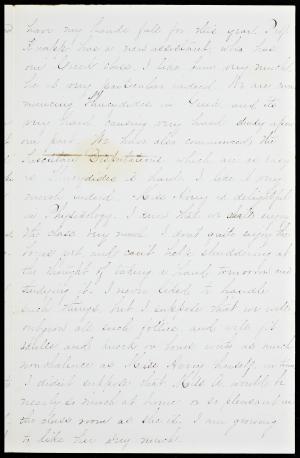 have my hands full for this year. Prof
has a new assistant, who has
our Greek class. I like him very much
he is very particular indeed. We are now
mencing Thucydides in Greek, and its
very hard causing very hard study upon
our part. We have also commenced the
Tusculan Disputations, which are as easy
as Thucydides is hard. I like it very
much indeed. Miss is delightful
in Physiology. I find that we will enjoy
the class very much. I don't quite enjoy the
bones yet, and can't help shuddering at
the thought of taking a hand tomorrow and
studying it. I never liked to handle
such things, but I suppose that we will
outgrow all such follies, and will yet
skulls and such bones with as much
nonchalance as Miss herself.
I didn't suppose that Miss A. would be
nearly so much at home or so pleasant in
the class room as she is, I am growing
to like her very much.